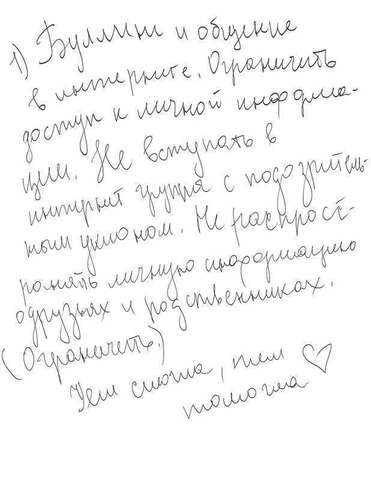 1) Буллинг и общение
в интернете. Ограничить
доступ к личной информа-
ции. Не вступать в
интернет группы с подозритель-
ным уклоном. Не распрост-
ранять личную информацию
о друзьях и родственниках.
(Ограничить.)
Чем смогла, тем
помогла ♡